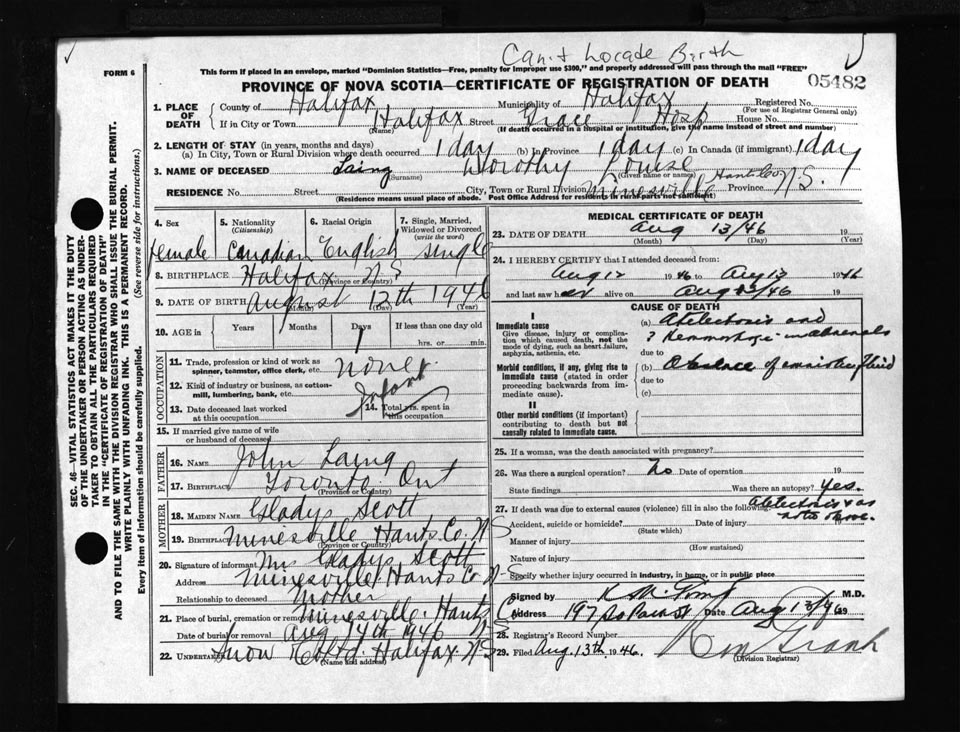 Can't Locate Birth
FORM 6
This form if placed in an envelope, marked "Dominion Statistics—Free, penalty for improper use $300," and properly addressed will pass through the mail "FREE"
PROVINCE OF NOVA SCOTIA—CERTIFICATE OF REGISTRATION OF DEATH 05482
1. PLACE OF DEATH { County of Halifax Municipality of Halifax Registered No.
(For use of Registrar General only)
If in City or Town Halifax Street Grace Hosp House No.
(Name) (If death occurred in a hospital or institution, give the name instead of street and number)
2. LENGTH OF STAY (in years, months and days)
(a) In City, Town or Rural Division where death occurred 1 day (b) In Province 1 day (c) In Canada (if immigrant) 1 day
3. NAME OF DECEASED Laing Dorothy Louise
(Surname) (Given name or names)
RESIDENCE No. Street City, Town or Rural Division Minesville Hants Co Province N.S.
(Residence means usual place of abode. Post Office Address for residents in rural parts not sufficient)
4. Sex 5. Nationality (Citizenship) 6. Racial Origin 7. Single, Married, Widowed or Divorced (write the word)
female Canadian English single
8. BIRTHPLACE Halifax N.S
(Province or Country)
9. DATE OF BIRTH August 12th 1946
(Month) (Day) (Year)
10. AGE in Years Months Days If less than one day old
1 hrs. or min.
OCCUPATION
11. Trade, profession or kind of work as spinner, teamster, office clerk, etc. none
12. Kind of industry or business, as cotton-mill, lumbering, bank, etc. Infant
13. Date deceased last worked at this occupation 14. Total yrs. spent in this occupation
15. If married give name of wife or husband of deceased
FATHER
16. NAME John Laing
17. BIRTHPLACE Toronto Ont
(Province or Country)
MOTHER
18. MAIDEN NAME Gladys Scott
19. BIRTHPLACE Minesville Hants Co. N.S
(Province or Country)
20. Signature of informant Mrs Gladys Scott
Address Minesville Hants Co N-S
Relationship to deceased Mother
21. Place of burial, cremation or removal Minesville Hants Co
Date of burial or removal Aug. 14th 1946 N.S
22. UNDERTAKER Snow & Co Ltd. Halifax N.S
(Name and address)
MEDICAL CERTIFICATE OF DEATH
23. DATE OF DEATH Aug 13/46
(Month) (Day) (Year)
24. I HEREBY CERTIFY that I attended deceased from:
Aug 12 1946 to Aug 13 1946
and last saw her alive on Aug 13/46 19
CAUSE OF DEATH
I
Immediate cause
Give disease, injury or complication which caused death, not the mode of dying, such as heart failure, asphyxia, asthenia, etc.
(a) Atelectosis and
? Hemmorhage in adrenals
due to
Morbid conditions, if any, giving rise to immediate cause (stated in order proceeding backwards from immediate cause).
(b) Absence of amniotic fluid
due to
(c)
II
Other morbid conditions (if important) contributing to death but not causally related to immediate cause.
25. If a woman, was the death associated with pregnancy?
26. Was there a surgical operation? No Date of operation 19
State findings Was there an autopsy? Yes.
27. If death was due to external causes (violence) fill in also the following: Atelectosis & as
noted above.
Accident, suicide or homicide? Date of injury
(State which)
Manner of injury
(How sustained)
Nature of injury
Specify whether injury occurred in industry, in home, or in public place
Signed by M.D.
Address 197 So Park St Date Aug 13/46 19
28. Registrar's Record Number
29. Filed Aug. 13th. 1946.
(Division Registrar)
SEC. 46—VITAL STATISTICS ACT MAKES IT THE DUTY
OF THE UNDERTAKER OR PERSON ACTING AS UNDERTAKER TO OBTAIN ALL THE PARTICULARS REQUIRED
IN THE "CERTIFICATE OF REGISTRATION OF DEATH"
AND TO FILE THE SAME WITH THE DIVISION REGISTRAR WHO SHALL ISSUE THE BURIAL PERMIT.
WRITE PLAINLY WITH UNFADING INK. THIS IS A PERMANENT RECORD.
Every item of information should be carefully supplied. (See reverse side for instructions.)